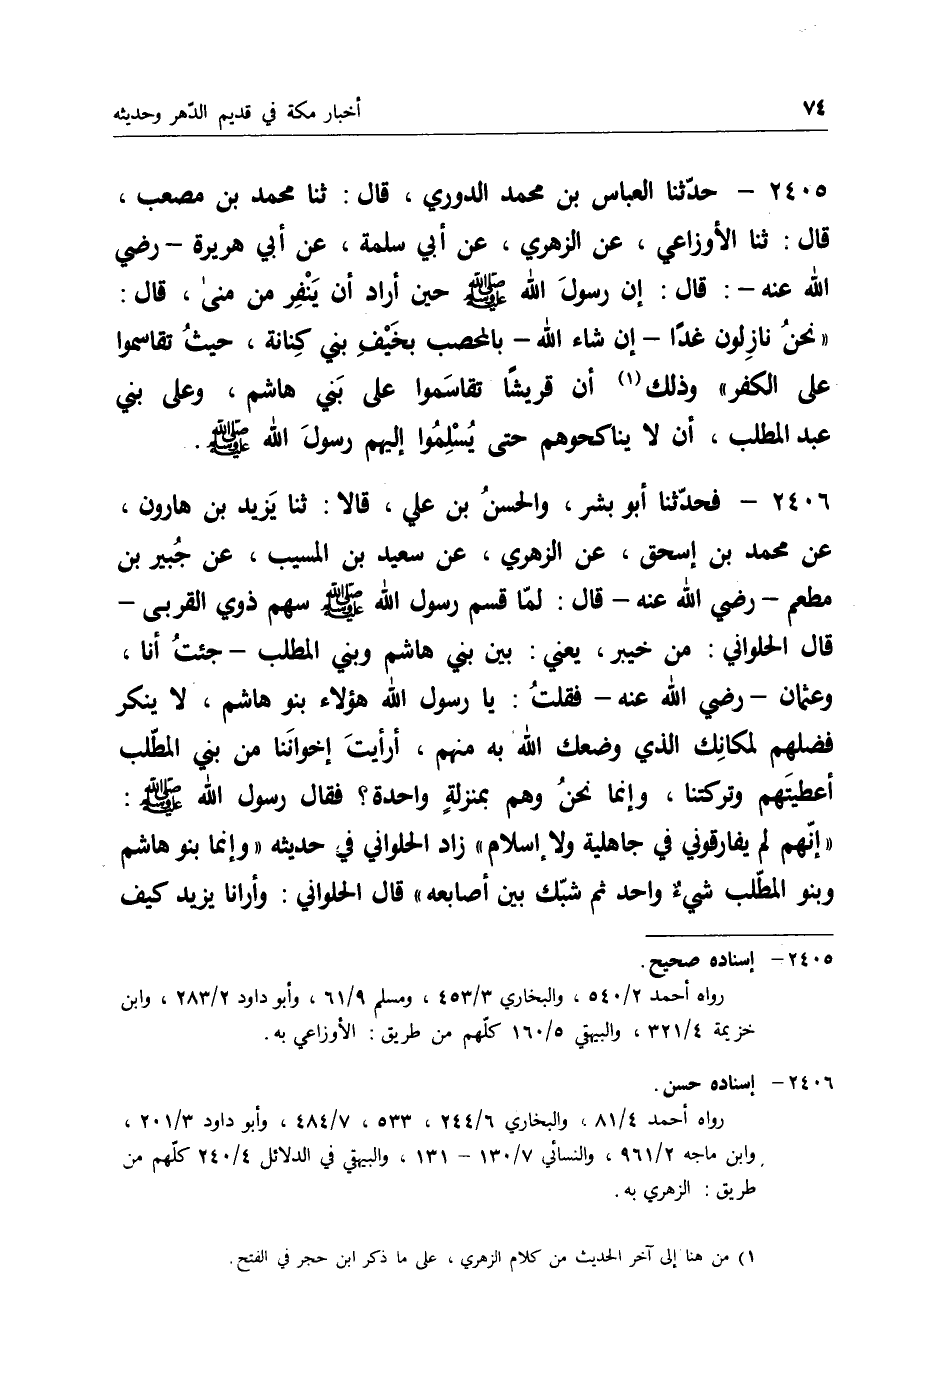 ٧٤ أخبار مكة في قديم الدّهر وحديثه
٢٤٠٥ – حدّثنا العباس بن محمد الدوري ، قال : ثنا محمد بن مصعب ،
قال : ثنا الأوزاعي ، عن الزهري ، عن أبي سلمة ، عن أبي هريرة – رضي
الله عنه – : قال : إن رسولَ الله ﷺ حين أراد أن يَنْفِر من منىٰ ، قال :
« نحنُ نازِلون غدًا – إن شاء الله – بالمحصب بخَيْفِ بني كِنانة ، حيثُ تقاسموا
على الكفر» وذلك(١) أن قريشًا تقاسَموا على بَني هاشم ، وعلى بني
عبد المطلب ، أن لا يناكحوهم حتى يُسْلِمُوا إليهم رسولَ الله ﷺ .
٢٤٠٦ – فحدّثنا أبو بشر ، والحسنُ بن علي ، قالا : ثنا يَزيد بن هارون ،
عن محمد بن إسحق ، عن الزهري ، عن سعيد بن المسيب ، عن جُبير بن
مطعم – رضي الله عنه – قال : لمّا قسم رسول الله ﷺ سهم ذوي القربى –
قال الحلواني : من خيبر ، يعني : بين بني هاشم وبني المطلب – جئتُ أنا ،
وعثمان – رضي الله عنه – فقلتُ : يا رسول الله هؤلاء بنو هاشم ، لا ينكر
فضلهم لمكانِك الذي وضعك الله به منهم ، أرأيتَ إخوانَنا من بني المطّلب
أعطيتَهم وتركتنا ، وإنما نحنُ وهم بمنزلةٍ واحدة؟ فقال رسول الله ﷺ :
« إنّهم لم يفارقوني في جاهلية ولا إسلام » زاد الحلواني في حديثه « وإنما بنو هاشم
وبنو المطّلب شيءٌ واحد ثم شبّك بين أصابعه » قال الحلواني : وأرانا يزيد كيف
٢٤٠٥ – إسناده صحيح .
رواه أحمد ٥٤٠/٢ ، والبخاري ٤٥٣/٣ ، ومسلم ٦١/٩ ، وأبو داود ٢٨٣/٢ ، وابن
خزيمة ٣٢١/٤ ، والبيهقي ١٦٠/٥ كلّهم من طريق : الأوزاعي به .
٢٤٠٦ – إسناده حسن .
رواه أحمد ٨١/٤ ، والبخاري ٢٤٤/٦ ، ٥٣٣ ، ٤٨٤/٧ ، وأبو داود ٢٠١/٣ ،
وابن ماجه ٩٦١/٢ ، والنسائي ١٣٠/٧ – ١٣١ ، والبيهقي في الدلائل ٢٤٠/٤ كلّهم من
طريق : الزهري به .
١) من هنا إلى آخر الحديث من كلام الزهري ، على ما ذكر ابن حجر في الفتح .